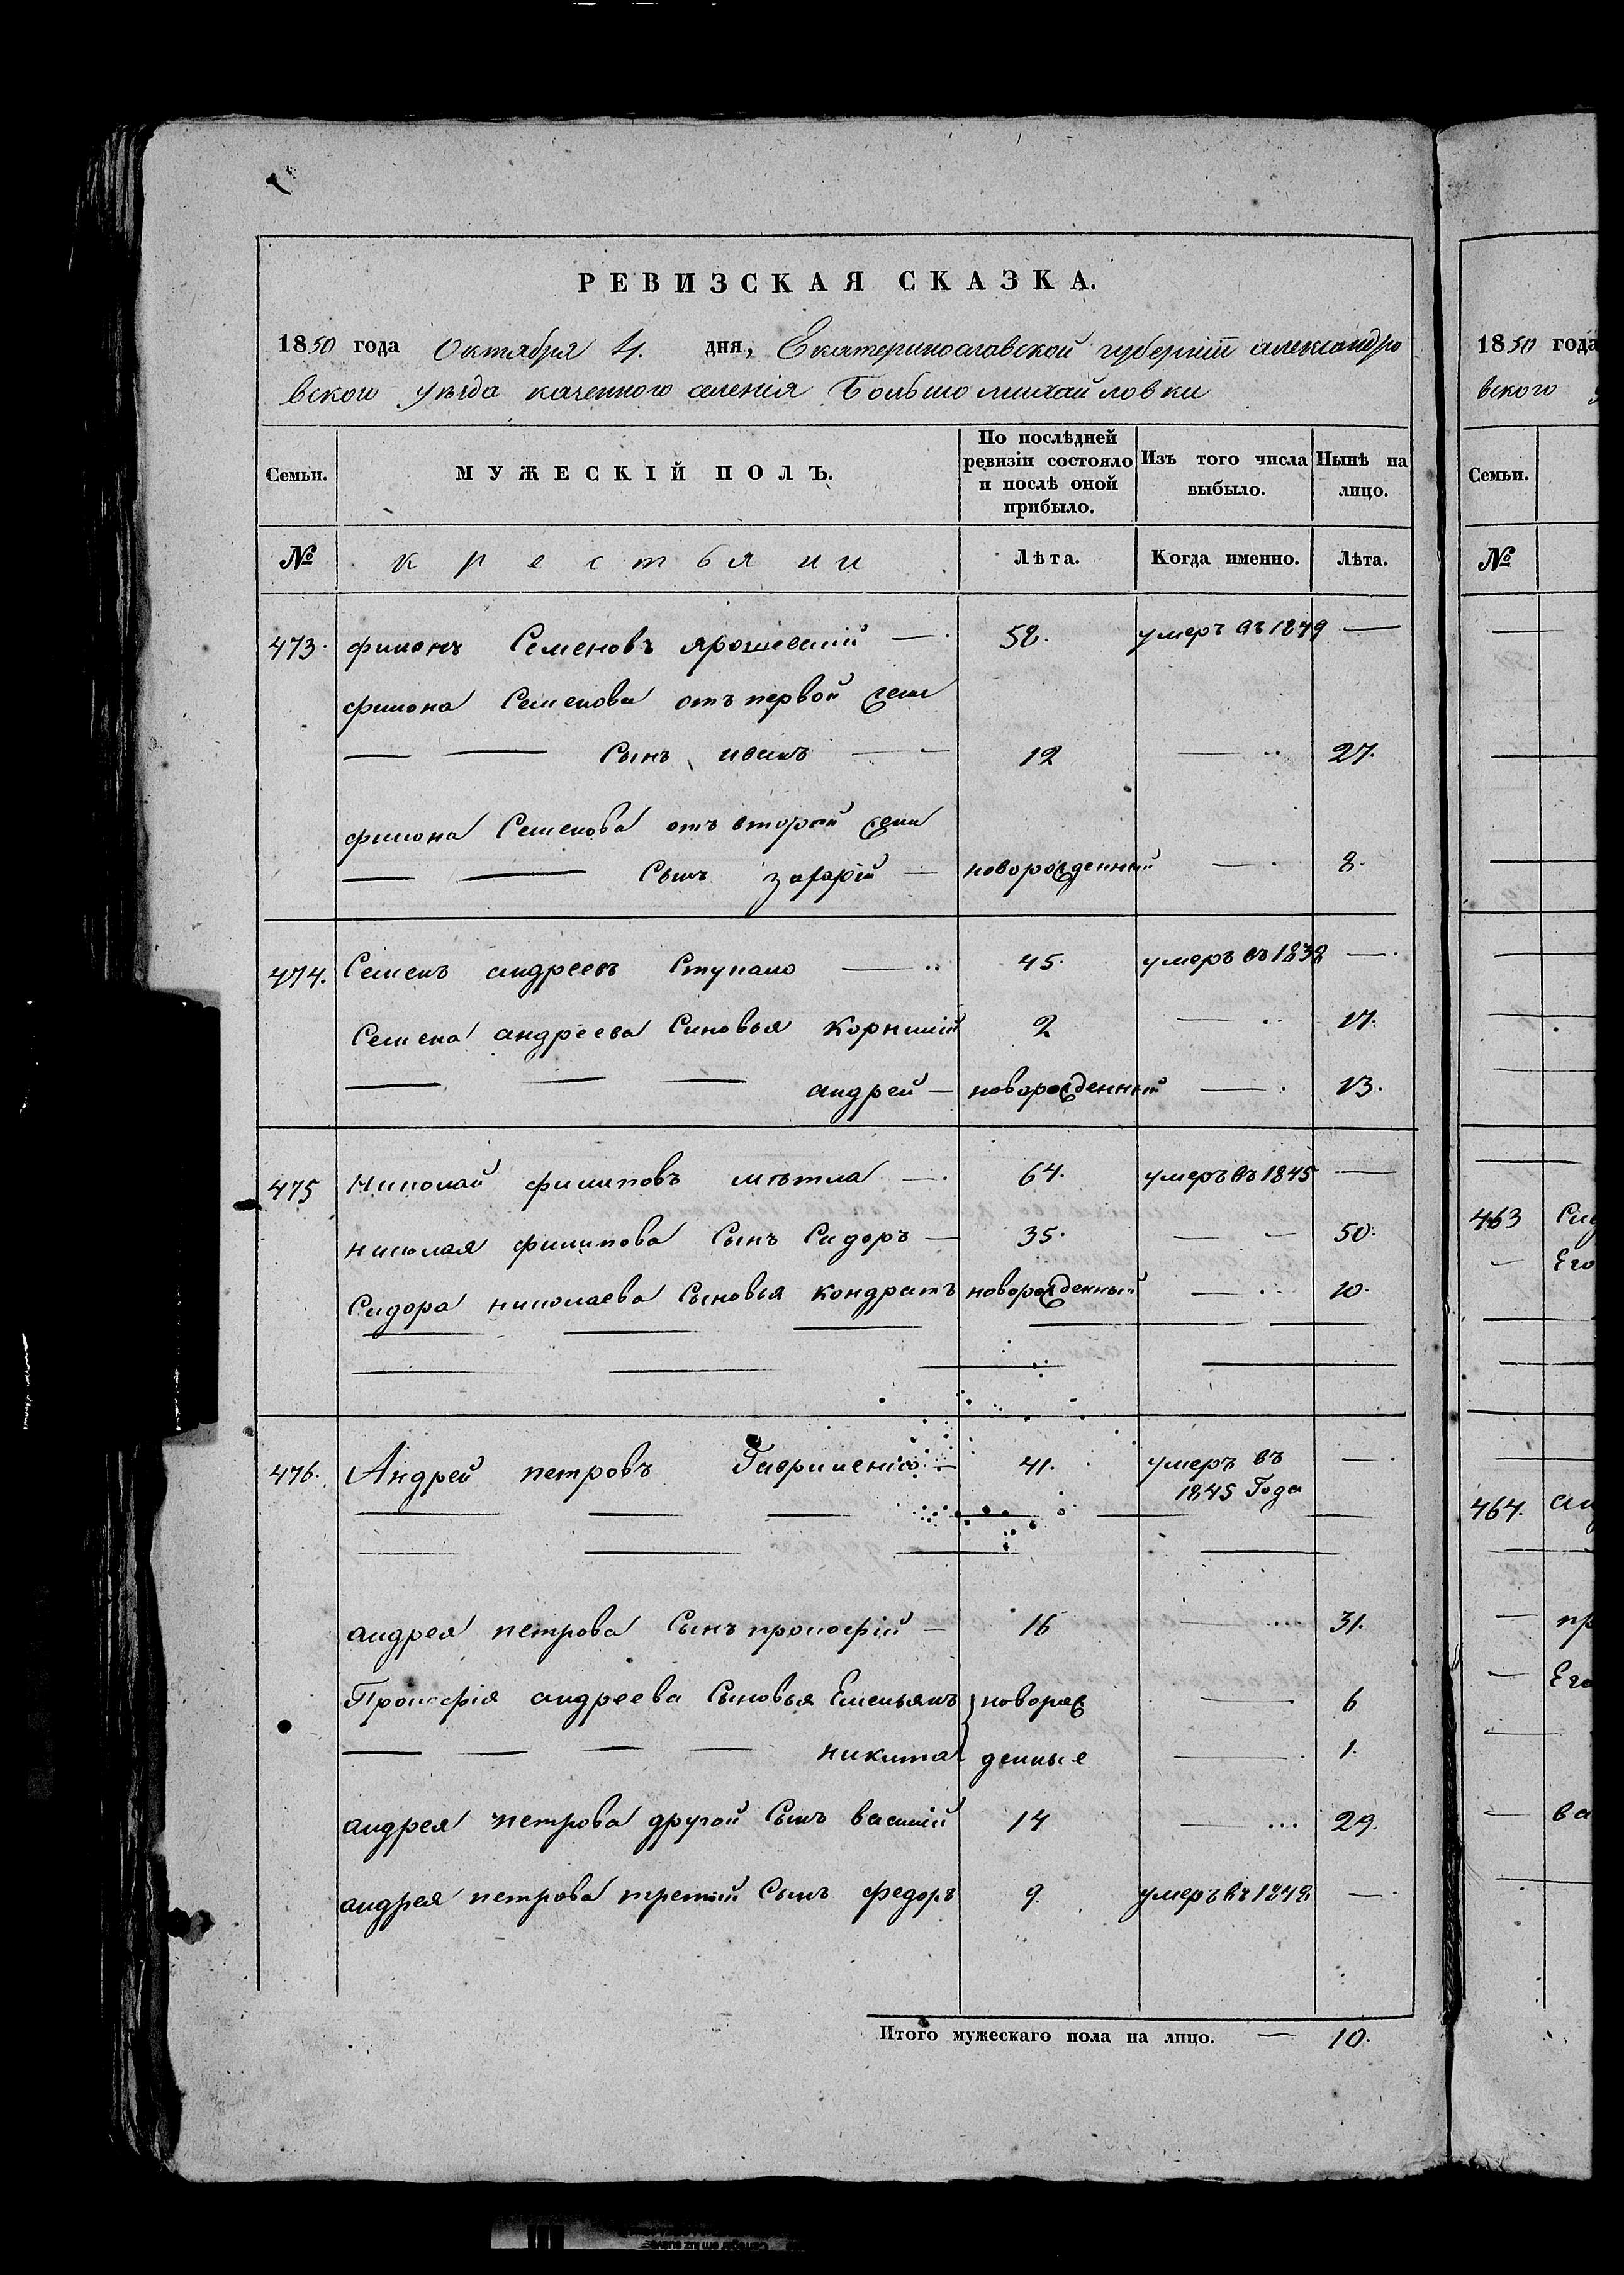 РЕВИЗСКАЯ СКАЗКА.
1850 года Октября 4. дня, Екатеринославской губерніи александро
вского уезда казенного селенія Большомихайловки
Семьи.
МУЖЕСКІЙ ПОЛЪ.
По послѣдней ревизіи состояло и послѣ оной прибыло.
Изъ того числа выбыло.
Нынѣ на лицо.
№ крестьяни Лѣта. Когда именно. Лѣта.
473. филонъ Семеновъ ярошевскій — 58. умеръ въ 1849 —
филона Семенова отъ первой жены
— — Сынъ иванъ — 12 — 27.
филона Семенова отъ второй жены
— — Сынъ захарій — новорожденный — 8.
474. Семенъ андреевъ Ступако — 45. умеръ въ 1838 —
Семена андреева Сыновья Корнилій 2 — 17.
— — — андрей — новорожденный — 13.
475 Николай филиповъ мѣтла — 64. умеръ въ 1845 —
николая филипова Сынъ Сидоръ — 35. — 50.
Сидора николаева Сыновья кондратъ новорожденный — 10.
476. Андрей петровъ Гавриленко — 41. умеръ въ —
1845 Года
андрея петрова Сынъ прокофій — 16 — 31.
Прокофія андреева Сыновья Емельянъ } новорож — 6
— — — — никита } денные — 1.
андрея петрова другой Сынъ василій 14 — 29.
андрея петрова третій Сынъ федоръ 9. умеръ въ 1842 —
Итого мужескаго пола на лицо. — 10.
1850 года
вского
Семьи.
№
463 Сид
Его
464.
пр
Его
ва